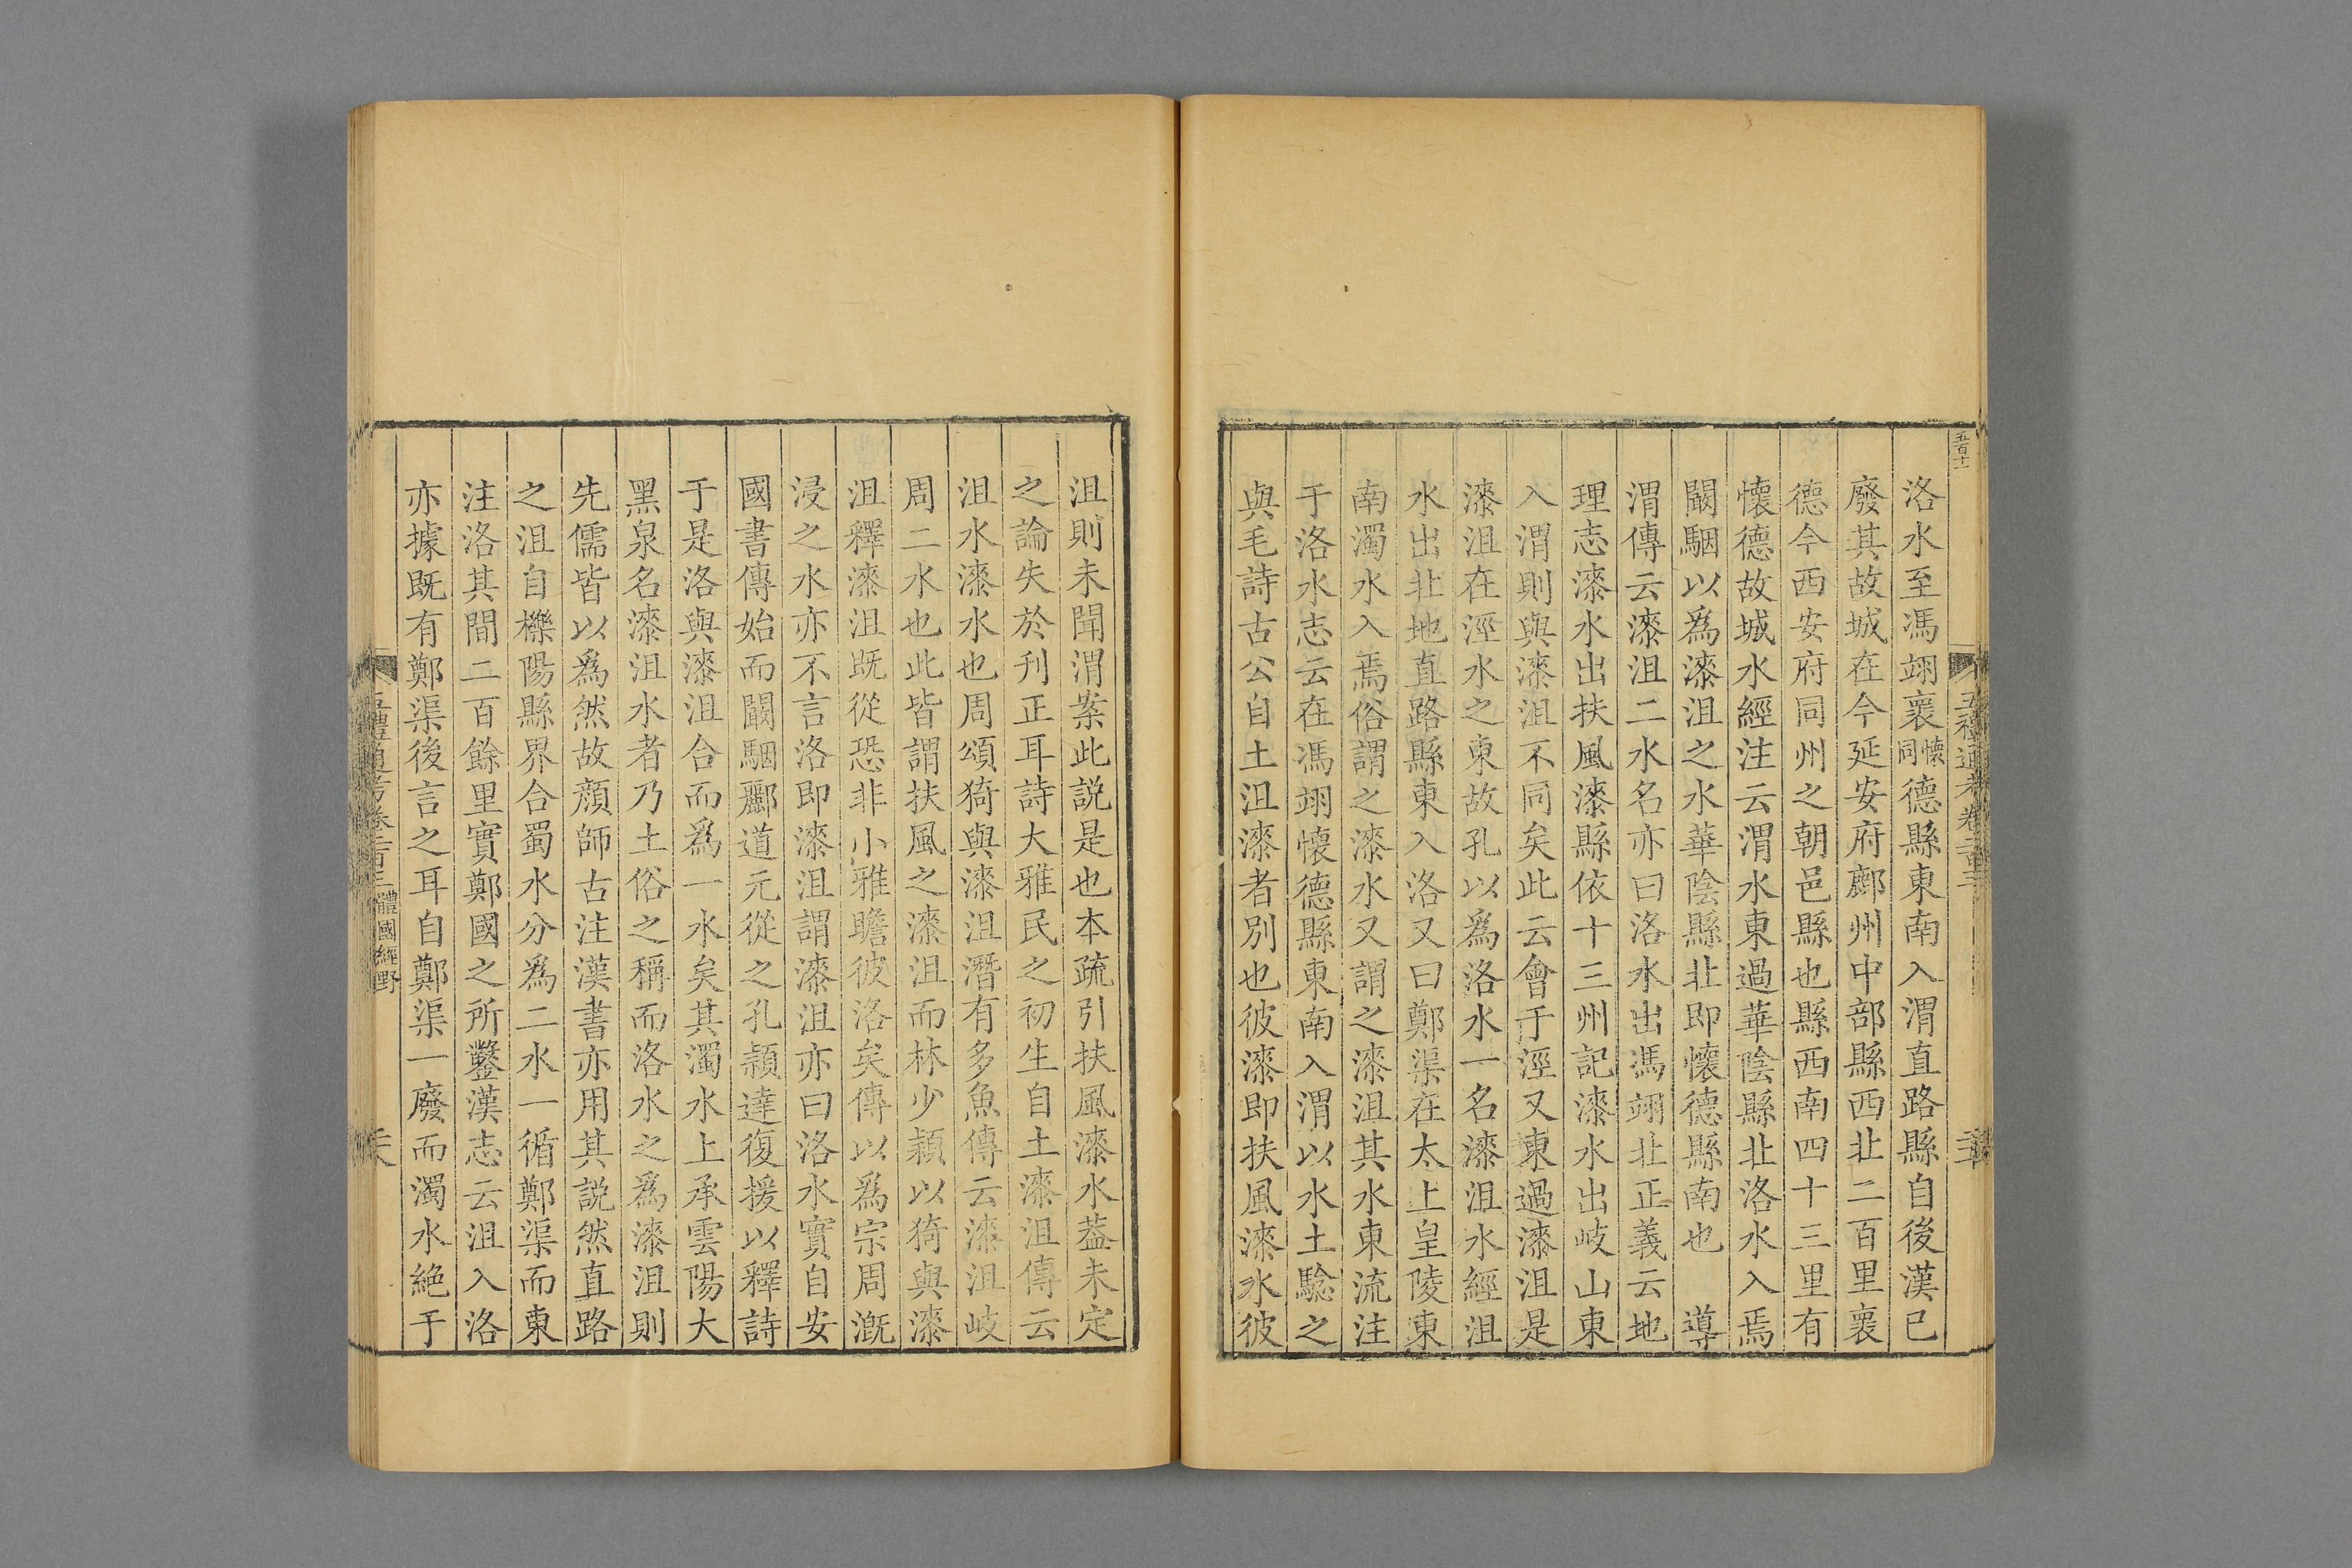 五百十二
洛水至馮翊褱懷同德縣東南入渭直路縣自後漢已
廢其故城在今延安府鄜州中部縣西北二百里褱
德今西安府同州之朝邑縣也縣西南四十三里有
懷德故城水經注云渭水東過華陰縣北洛水入焉
闞駰以爲漆沮之水華陰縣北即懷德縣南也　導
渭傳云漆沮二水名亦曰洛水出馮翊北正義云地
理志漆水出扶風漆縣依十三州記漆水出岐山東
入渭則與漆沮不同矣此云會于涇又東過漆沮是
漆沮在涇水之東故孔以爲洛水一名漆沮水經沮
水出北地直路縣東入洛又曰鄭渠在太上皇陵東
南濁水入焉俗謂之漆水又謂之漆沮其水東流注
于洛水志云在馮翊懷德縣東南入渭以水土驗之
與毛詩古公自土沮漆者別也彼漆即扶風漆水彼
沮則未聞渭案此說是也本疏引扶風漆水葢未定
之論失於刋正耳詩大雅民之初生自土漆沮傳云
沮水漆水也周頌猗與漆沮潛有多魚傳云漆沮岐
周二水也此皆謂扶風之漆沮而林少穎以猗與漆
沮釋漆沮既從恐非小雅瞻彼洛矣傳以爲宗周漑
浸之水亦不言洛即漆沮謂漆沮亦曰洛水實自安
國書傳始而闞駰酈道元從之孔穎達復援以釋詩
于是洛與漆沮合而爲一水矣其濁水上承雲陽大
黑泉名漆沮水者乃土俗之稱而洛水之爲漆沮則
先儒皆以爲然故顏師古注漢書亦用其說然直路
之沮自櫟陽縣界合蜀水分爲二水一循鄭渠而東
注洛其間二百餘里實鄭國之所鑿漢志云沮入洛
亦據既有鄭渠後言之耳自鄭渠一廢而濁水絶于
五禮通考卷二百三 體國經野